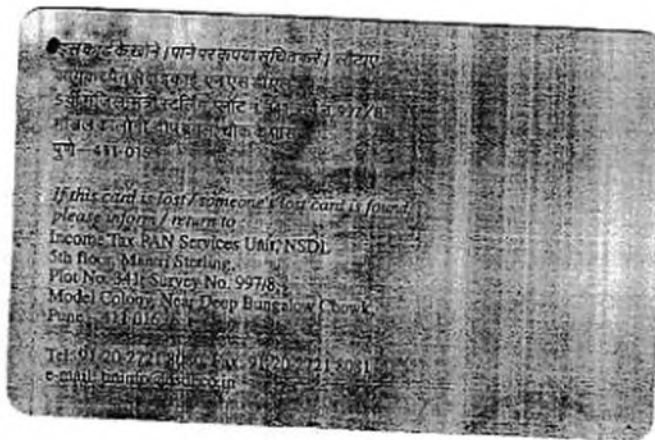 इस कार्ड के खोने / पाने पर कृपया सूचित करें / लौटाएं
आयकर पैन सेवा इकाई, एनएसडीएल
5वीं मंजिल, मंत्री स्टर्लिंग, प्लॉट नं. 341, सर्वे नं. 997/8,
मॉडल कालोनी, दीप बंगला चौक के पास,
पुणे - 411 016
If this card is lost / someone's lost card is found,
please inform / return to :
Income Tax PAN Services Unit, NSDL
5th floor, Mantri Sterling,
Plot No. 341, Survey No. 997/8,
Model Colony, Near Deep Bungalow Chowk,
Pune - 411 016
Tel: 91-20-2721 8080, Fax: 91-20-2721 8081
e-mail: tininfo@nsdl.co.in